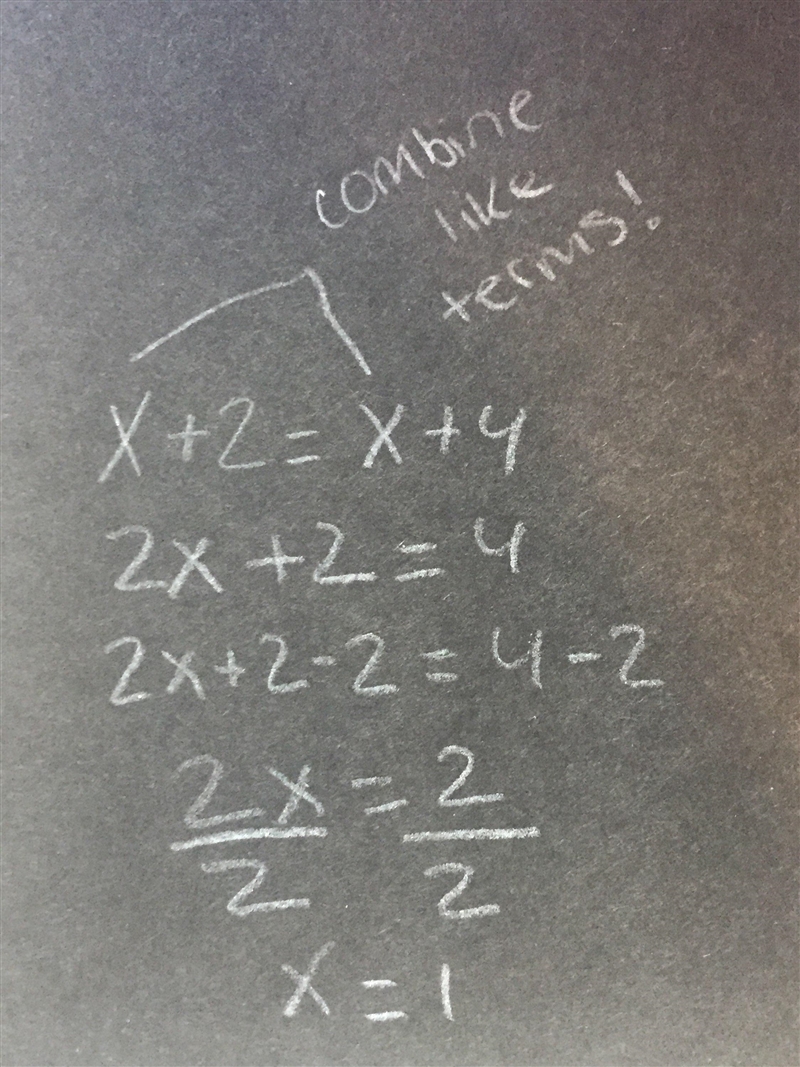 combine
like
terms!
x+2=x+4
2x+2=4
2x+2-2=4-2
2x=2
2 2
x=1